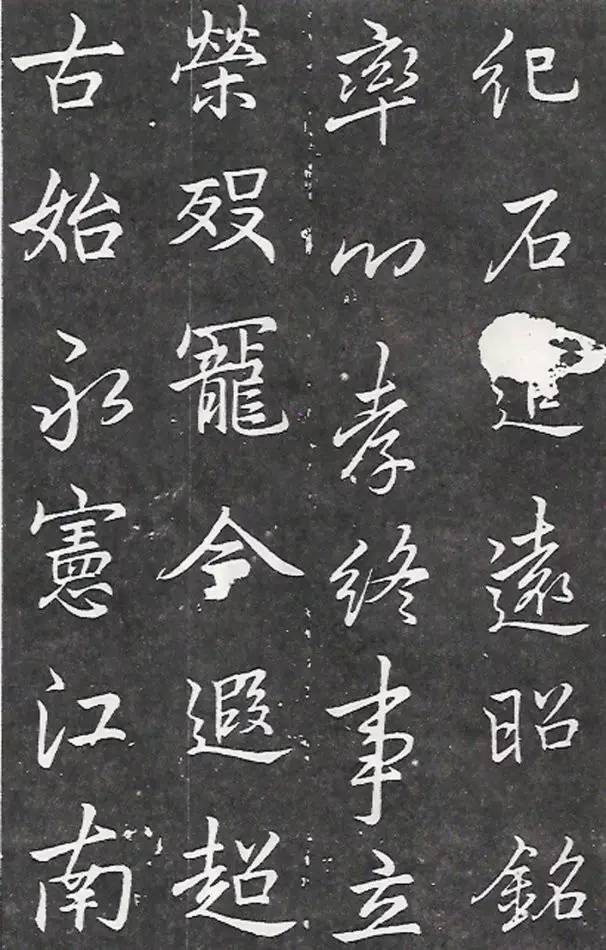 紀石追遠昭銘
率心孝終事立
榮歿寵今遐超
古始永憲江南